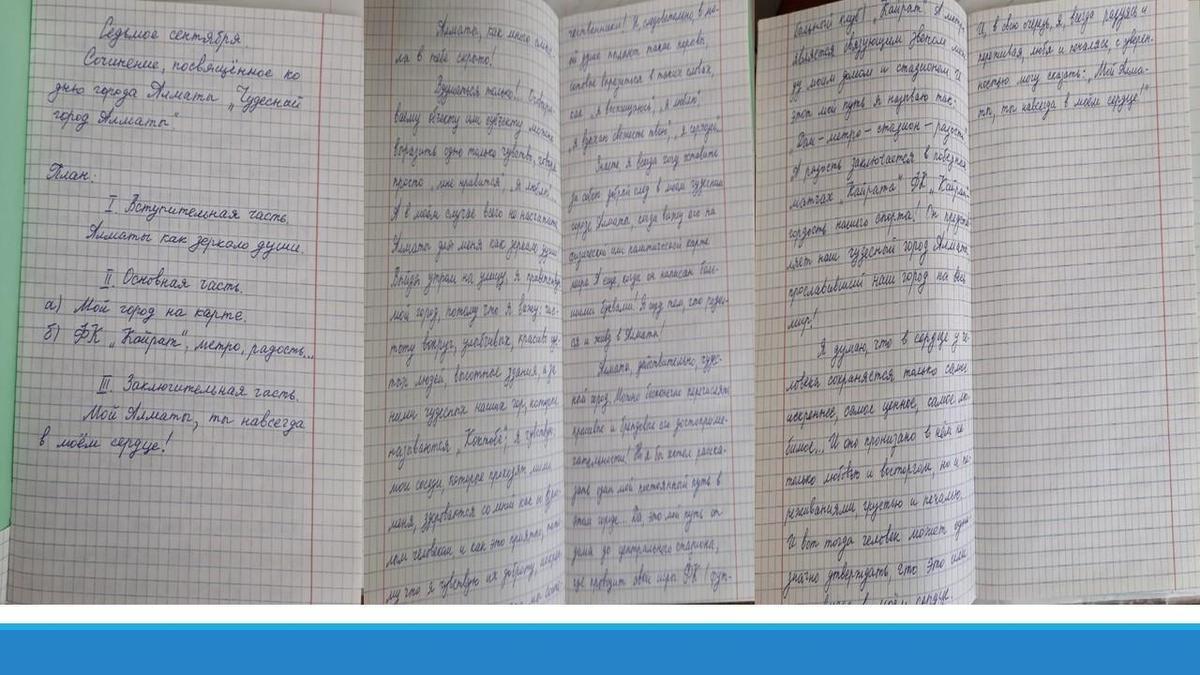 Седьмое сентября.
Сочинение, посвящённое ко
дню города Алматы „Чудесный
город Алматы".
План:
I. Вступительная часть.
Алматы как зеркало души.
II. Основная часть.
а) Мой город на карте.
б) ФК „Кайрат", метро, радость...
III. Заключительная часть.
Мой Алматы, ты навсегда
в моём сердце!
Алматы, как много смыс-
ла в тебе сокрыто!
Вдуматься только!..
всему объекту или субъекту можно
выразить одно только чувство, говоря
просто „мне нравится", „я люблю"...
А в моём случае всего
Алматы для меня как зеркало души
Выйдя утром на улицу, я приветствую
мой город, потому что я вижу: чис-
тоту вокруг, улыбчивых, красиво
людей, высотное здания, а за
ними чудесных наших гор, которые
называются „Коктобе"; я чувствую,
мои соседи, которые проходят мимо
меня, здороваются со мной как со взро-
лым человеком и как это приятно, пото-
му что я чувствую их доброту,
И, следовательно, в мо-
ей душе
в таких словах,
как „я восхищаюсь", „я люблю",
„я вдыхаю свежесть твою", „я горжусь".
Знаете, я всегда хочу оставить
за собою добрый след в моём чудесном
городе Алматы, когда вижу его на
физической или политической карте
мира. А ещё, когда он написан боль-
шими буквами! Я горд тем, что родил-
ся и живу в Алматы!
Алматы, действительно, чудес-
ный город. Можно бесконечно перечислять
красивые и его достоприме-
чательности! Но я бы хотел расска-
зать один мой постоянный путь в
этом городе... Да, это мой путь от
дома до центрального стадиона,
где проводит свои игры ФК (фут-
больный клуб) „Кайрат". А метро
является связующим звеном меж-
ду моим домом и стадионом. И
этот мой путь я называю так:
„Дом – метро – стадион – радость".
А радость заключается в победных
матчах „Кайрата". ФК „Кайрат"
гордость нашего спорта! Он представ-
ляет наш чудесный город Алматы,
прославивший наш город на весь
мир!
Я думаю, что в сердце у че-
ловека сохраняется только самое
искреннее, самое ценное, самое лю-
бимое... И оно пронизано в нём не
только любовью и восторгом, но и пе-
реживаниями, грустью и печалью.
И вот тогда человек может одно-
значно утверждать, что это или
в моём сердце.
И, в свою очередь, я, всегда радуясь и
переживая, любя и печалясь, с уверен-
ностью могу сказать: „Мой Алма-
ты, ты навсегда в моём сердце!"